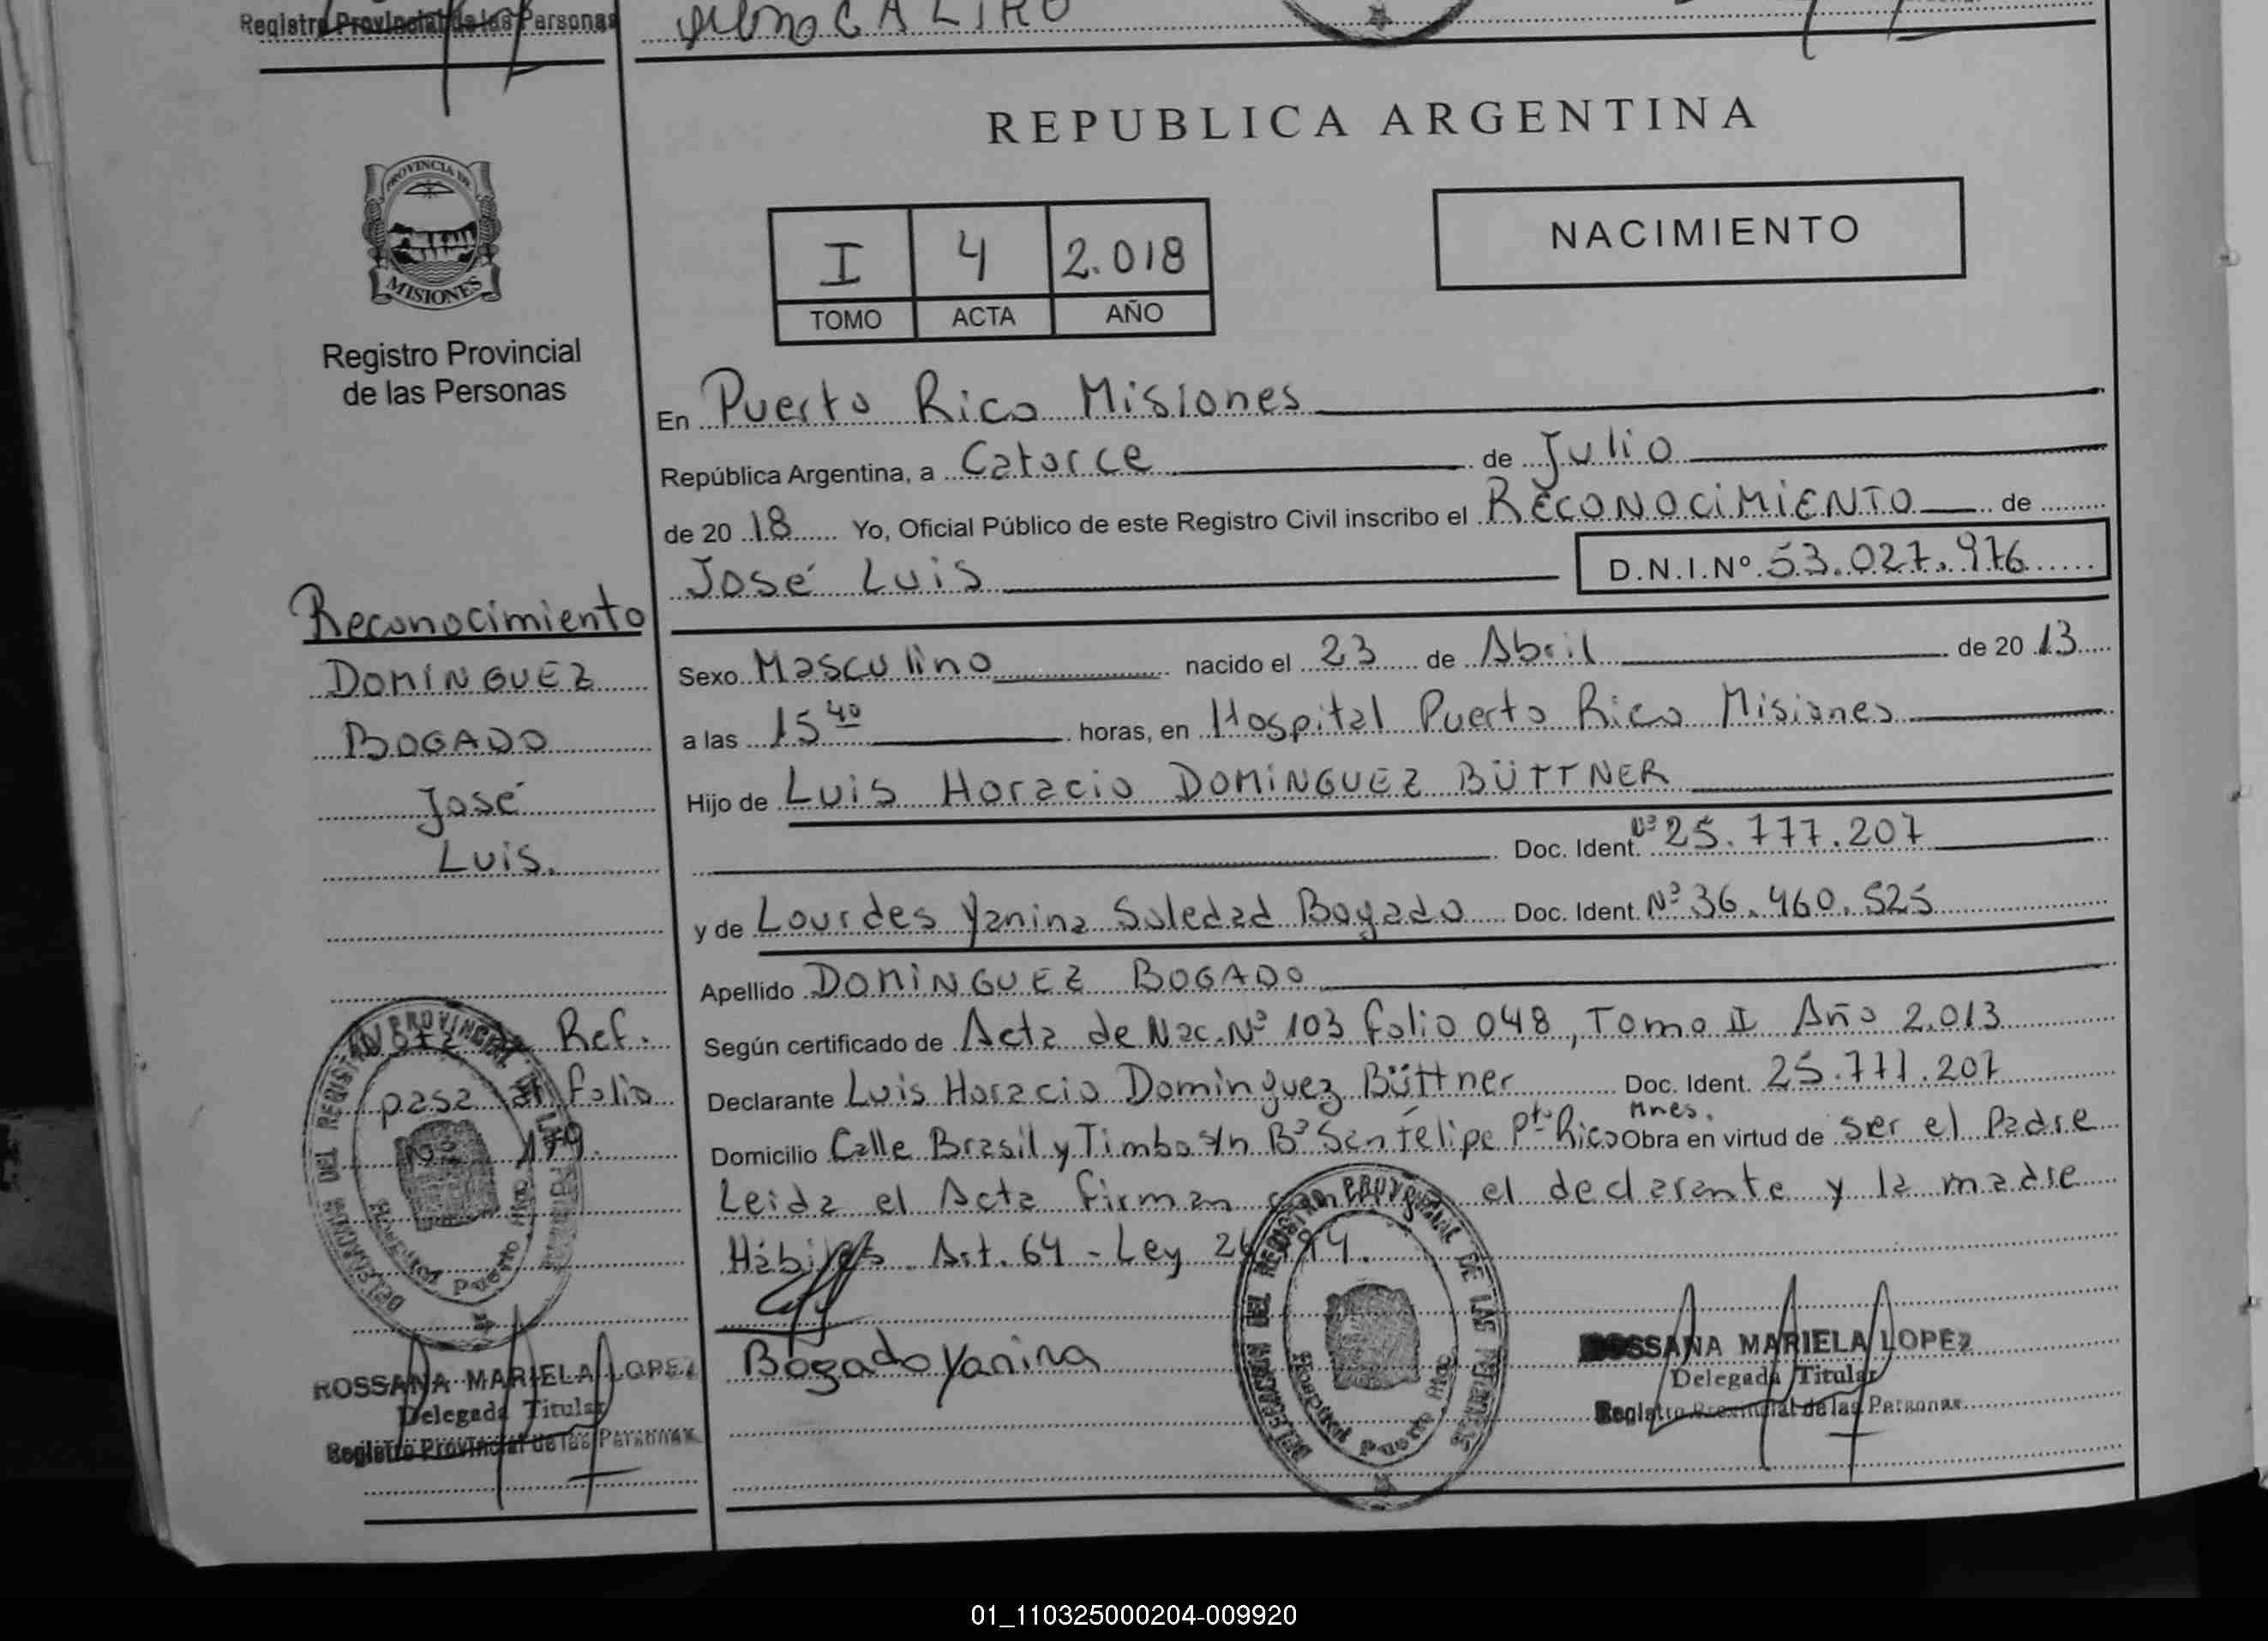 Registro Provincial de las Personas
REPUBLICA ARGENTINA
PROVINCIA DE
MISIONES
Registro Provincial
de las Personas
I 4 2.018
TOMO ACTA AÑO
NACIMIENTO
En Puerto Rico Misiones
República Argentina, a Catorce de Julio
de 2018 Yo, Oficial Público de este Registro Civil inscribo el RECONOCIMIENTO de
José Luis D.N.I.Nº 53.027.976
Reconocimiento
DOMINGUEZ
BOGADO
José
Luis.
Sexo Masculino nacido el 23 de Abril de 2013
a las 15 40 horas, en Hospital Puerto Rico Misiones
Hijo de Luis Horacio DOMINGUEZ BÜTTNER
Doc. Ident. Nº 25.777.207
y de Lourdes Yanina Soledad Bogado Doc. Ident. Nº 36.460.525
Apellido DOMINGUEZ BOGADO
Según certificado de Acta de Nac. Nº 103 folio 048, Tomo II Año 2.013
Declarante Luis Horacio Dominguez Büttner Doc. Ident. 25.777.207
Domicilio Calle Brasil y Timbo s/n Bº San Felipe Pto Rico Mnes. Obra en virtud de ser el Padre
Leida el Acta firman el declarante y la madre
Hábiles. Art. 64 - Ley 26.994.
Bogado Yanina
Nota Ref.
pasa al folio
Nº 179.
DELEGACION DEL REGISTRO PROVINCIAL DE LAS PERSONAS
Hospital Puerto Rico
ROSSANA MARIELA LOPEZ
Delegada Titular
Registro Provincial de las Personas
DELEGACION DEL REGISTRO PROVINCIAL DE LAS PERSONAS
Hospital Puerto Rico
ROSSANA MARIELA LOPEZ
Delegada Titular
Registro Provincial de las Personas
01_110325000204-009920